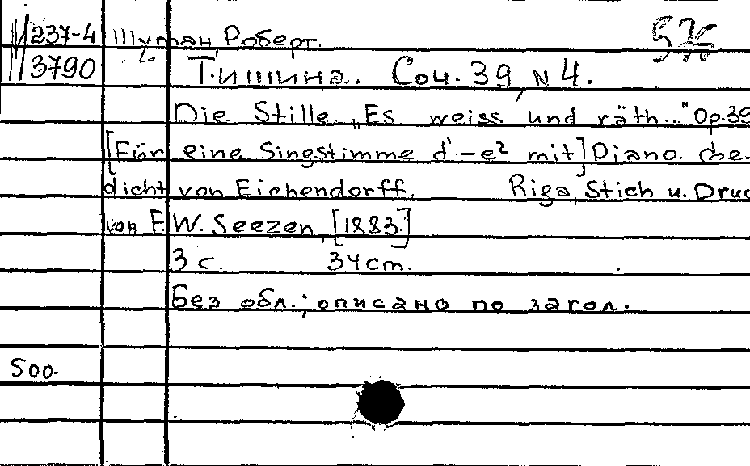 М 237-4 Шуман, Роберт.
3790 Тишина. Соч. 39, N 4.
Die Stille „Es weiss und räth..." Op.39
[Für eine Singstimme d'-e² mit] Piano. Ge-
dicht von Eichendorff. Riga, Stich u. Druc
von E. W. Seezen, [1883.]
3 с. 34 cm.
Без обл.; описано по загол.
500